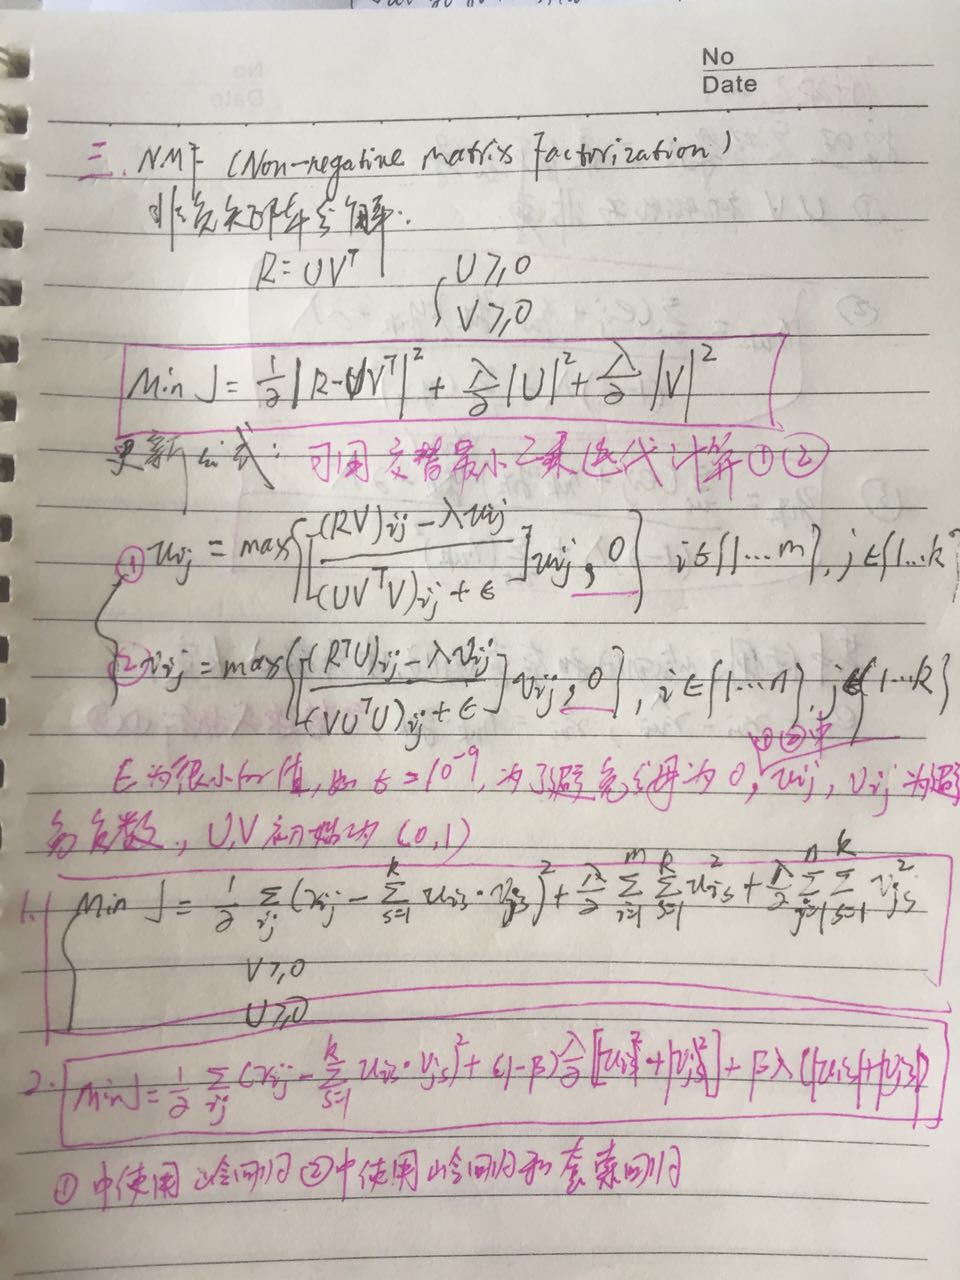 No
Date
三. NMF (Non-negative matrix Factorization)
非负矩阵分解:
R = UV^T  U ≥ 0
V ≥ 0
Min J = 1/2 |R-UV^T|^2 + λ/2 |U|^2 + λ/2 |V|^2
更新公式: 可用交替最小二乘迭代计算①②
① u_ij = max{[((RV)_ij - λu_ij) / ((UV^TV)_ij + ε)] u_ij, 0} i∈{1...m}, j∈{1...k}
② v_ij = max{[((R^TU)_ij - λv_ij) / ((VU^TU)_ij + ε)] v_ij, 0}, i∈{1...n}, j∈{1...k}
①②中
ε为很小的值, 如 ε = 10^-9, 为了避免分母为0, u_ij, v_ij 为避
免负数, U,V初始为 (0,1)
1. Min J = 1/2 Σ_ij (r_ij - Σ_{s=1}^k u_is · v_js)^2 + λ/2 Σ_{i=1}^m Σ_{s=1}^k u_is^2 + λ/2 Σ_{j=1}^n Σ_{s=1}^k v_js^2
V ≥ 0
U ≥ 0
2. Min J = 1/2 Σ_ij (r_ij - Σ_{s=1}^k u_is · v_js)^2 + (1-β) λ/2 [|u_is|^2 + |v_js|^2] + βλ(|u_is| + |v_js|)
①中使用岭回归 ②中使用岭回归和套索回归